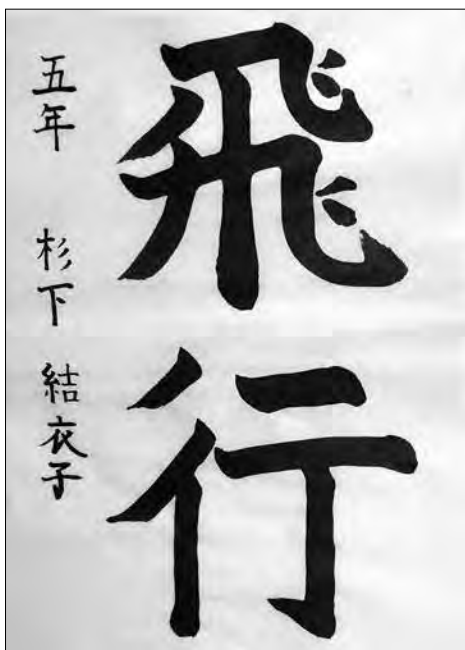 飛行
五年 杉下 結衣子